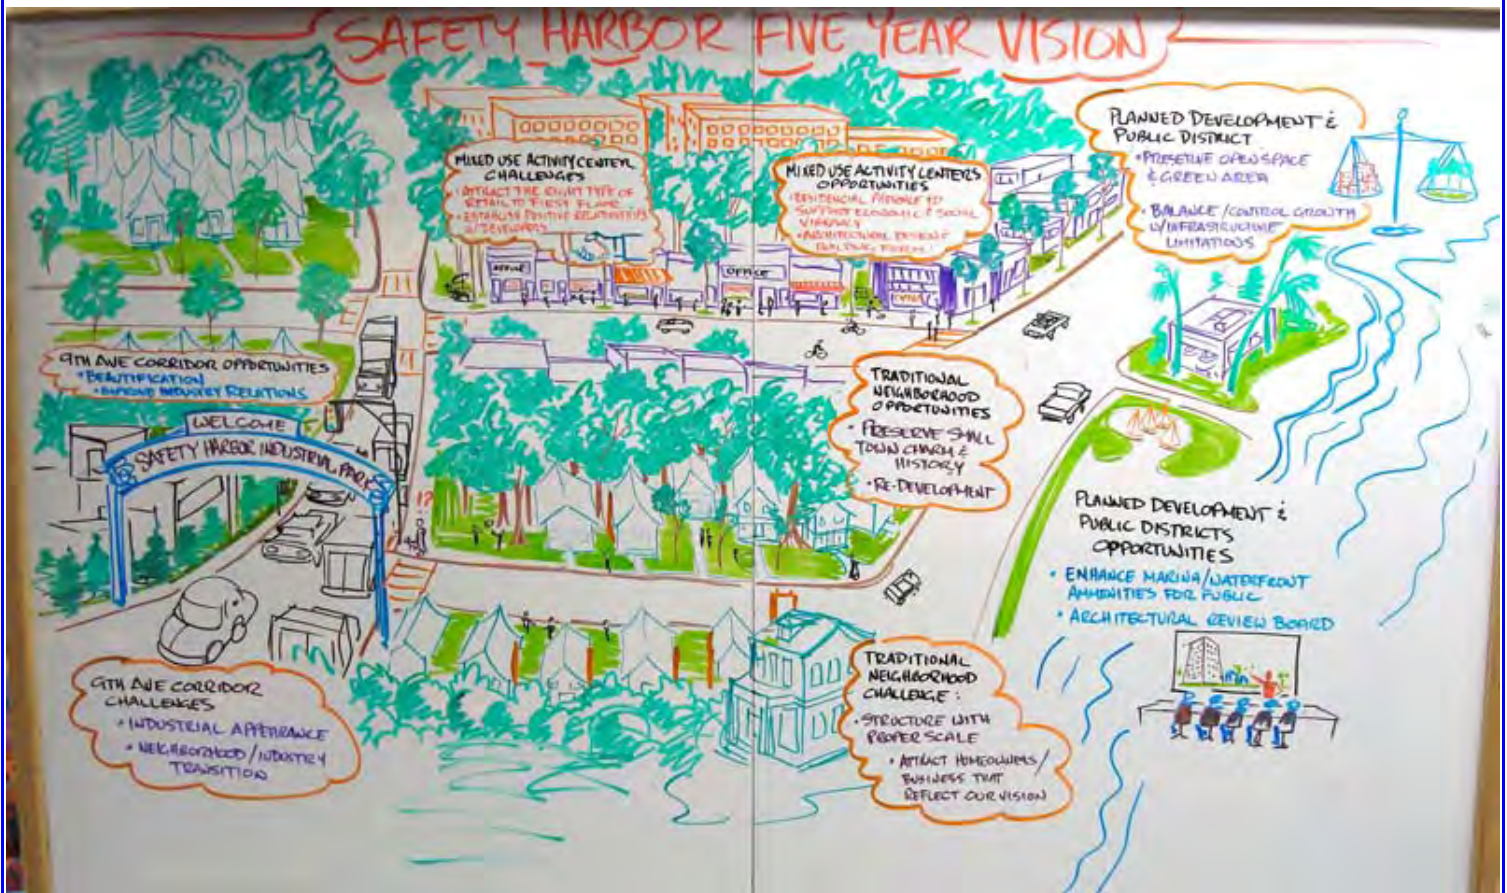 SAFETY HARBOR FIVE YEAR VISION
MIXED USE ACTIVITY CENTER
CHALLENGES
• ATTRACT THE RIGHT TYPE OF
RETAIL TO FIRST FLOOR
• ESTABLISH POSITIVE RELATIONSHIPS
W/DEVELOPERS
MIXED USE ACTIVITY CENTERS
OPPORTUNITIES
• RESIDENCIAL PRESENCE TO
SUPPORT ECONOMIC & SOCIAL
VIBRANCY
• ARCHITECTURAL DESIGN &
BUILDING FORM
PLANNED DEVELOPMENT &
PUBLIC DISTRICT
• PRESERVE OPEN SPACE
& GREEN AREA
• BALANCE/CONTROL GROWTH
W/INFRASTRUCTURE
LIMITATIONS
OFFICE
OFFICE
9TH AVE CORRIDOR OPPORTUNITIES
• BEAUTIFICATION
• IMPROVED INDUSTRY RELATIONS
WELCOME
SAFETY HARBOR INDUSTRIAL PARK
TRADITIONAL
NEIGHBORHOOD
OPPORTUNITIES
• PRESERVE SMALL
TOWN CHARM &
HISTORY
• RE-DEVELOPMENT
PLANNED DEVELOPMENT &
PUBLIC DISTRICTS
OPPORTUNITIES
• ENHANCE MARINA/WATERFRONT
AMMENITIES FOR PUBLIC
• ARCHITECTURAL REVIEW BOARD
9TH AVE CORRIDOR
CHALLENGES
• INDUSTRIAL APPEARANCE
• NEIGHBORHOOD/INDUSTRY
TRANSITION
TRADITIONAL
NEIGHBORHOOD
CHALLENGE:
• STRUCTURE WITH
PROPER SCALE
• ATTRACT HOMEOWNERS/
BUSINESS THAT
REFLECT OUR VISION